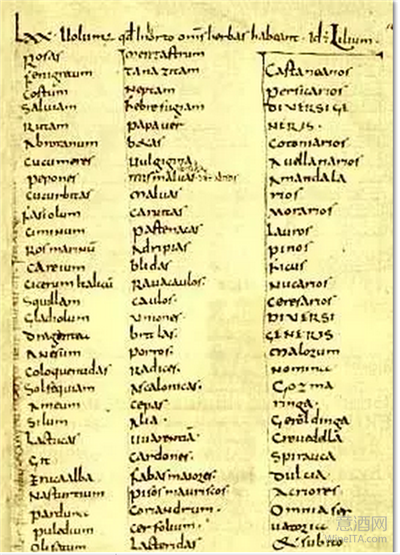 Lxx. Uolumus qđ In horto omñs herbas habeant. Id ÷ Lilium.
Rosas
fenigraum
Costum
Saluiam
Rutam
Abrotanum
Cucumeres
Pepones
Cucurbitas
fasiolum
Ciminum
Ros marinū
Careium
Cicerum Italicū
Squillam
Gladiolum
Anesum
Coloquentidas
Solsequiam
Ameum
Silum
Lactucas
Git
Eruca alba
Nasturtium
parduna
puladium
Olisatum
mentastrum
Tanazitam
Neptam
febrefugiam
Papauer
betas
Uulgigina
mismaluas
maluas
Caruitas
Pastenacas
Adripias
blidas
Rauacaulos.
Caulos.
Uniones.
britlas.
Porros.
Radices.
Ascalonicas.
Cepas.
Alia.
Uuarentiā.
Cardones.
fabas maiores.
Pisos mauriscos.
Coriandrum.
Cerfolium.
Lacteridas
Castanearios
Persicarios
DIVERSI GE
NERIS.
Cotoniarios
Auellanarios
Amandala
rios
Morarios
Lauros
pinos
ficus
Nucarios
Ceresarios
DIVERSI
GENERIS
Malorum
Nomina
Gozma
ringa.
Geroldinga
Creuedella
Spirauca
Dulcia
Acriores
Omnia ser
uatoria
& subito
意酒网
WineITA.com